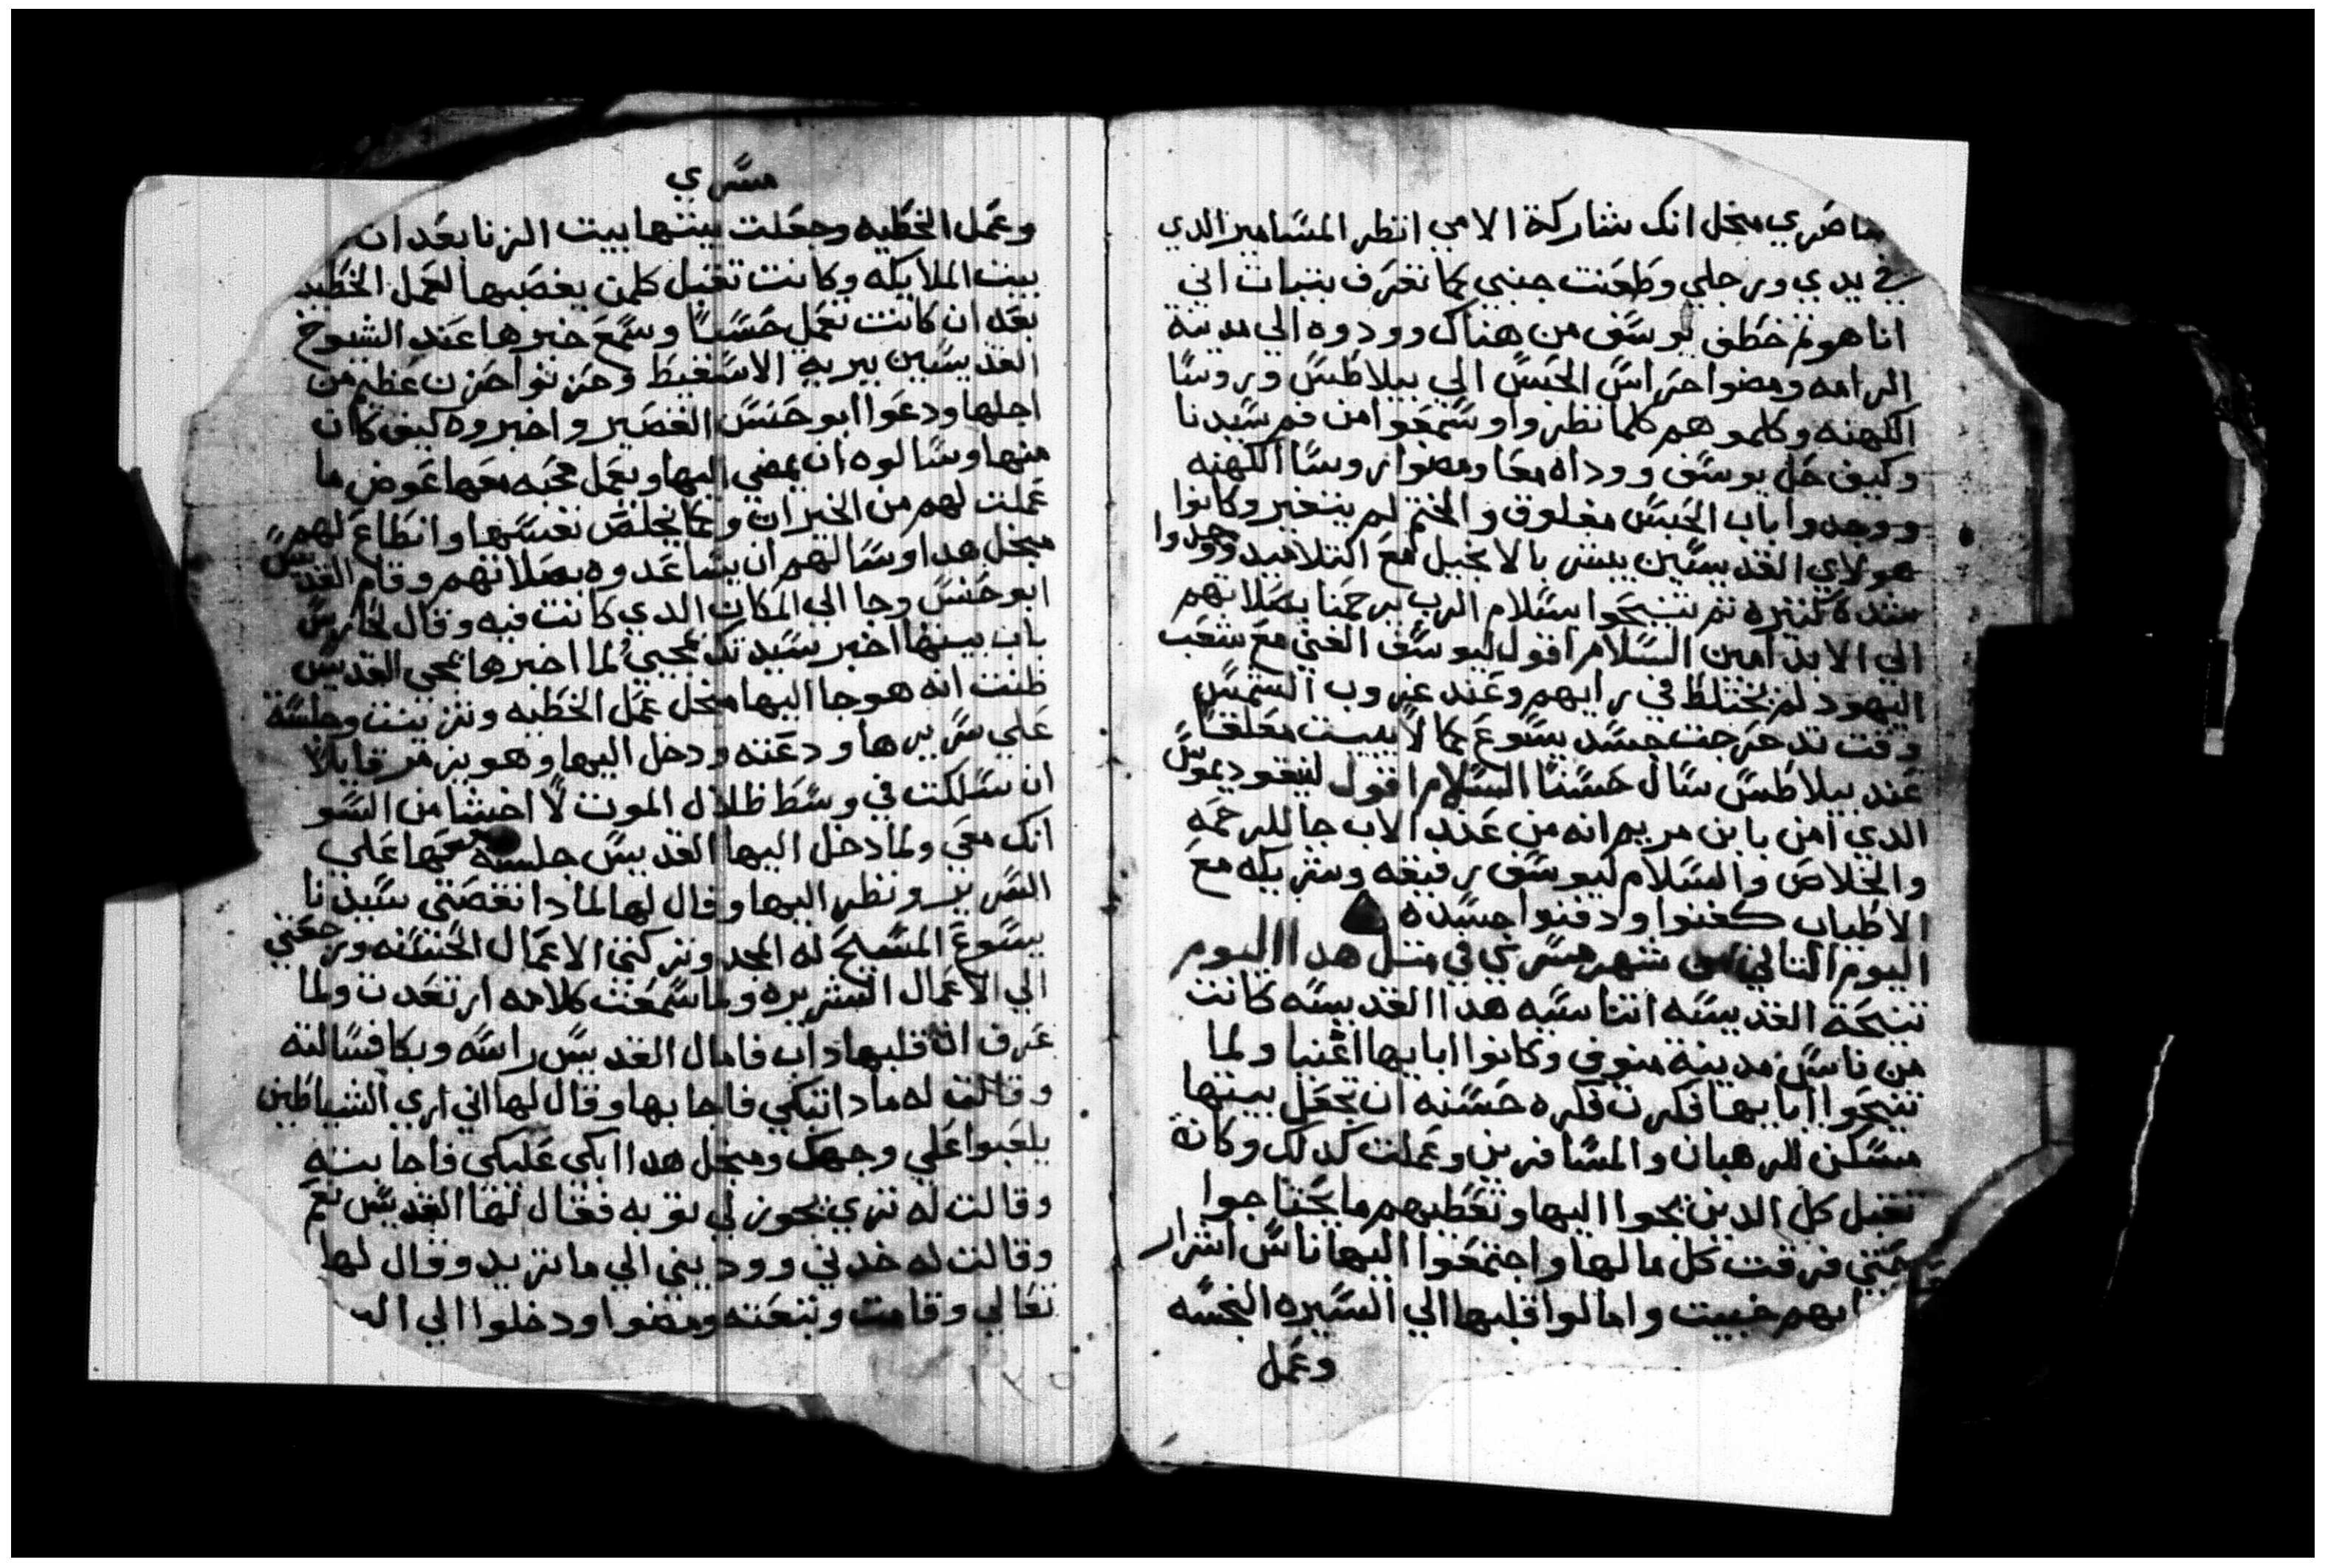 ناضري منجل انك شاركة الامي انظر المسامير الذي
في يدي ورجلي وطعنت جنبي كما تعرف بتبات اني
انا هو تم خطف يوسف من هناك وودوه الي مدينة
الرامه ومضوا حراس الحبس الي بيلاطس وروسا
الكهنه وكلموهم كلما نظروا وسمعوا من فم سيدنا
وكيف حل يوسف ووداه معا ومضوا روسا الكهنه
ووجدوا باب الحبس مغلوق والختم لم يتغير وكانوا
هولاي القديسين بيش بالانجيل مع التلاميد ووجدوا
شدة كتيره تم تنيحوا بسلام الرب يرحمنا بصلاتهم
الي الابد امين السلام اقول ليوسف الغني مع شعب
اليهود لم يختلط في رايهم وعند غروب الشمس
وقت تدحرجت جسد يسوع كما لا يبيت معلقا
عند بيلاطس سال حسنا السلام اقول لنيقوديموس
الدي امن بابن مريم انه من عند الاب جا للرحمه
والخلاص والسلام ليوسف رفيقه وشريكه مع
الاطياب كفنوا ودفنوا جسده
اليوم التاني من شهر مسري في متل هدا اليوم
تنيحة القديسه اتناسيه هدا القديسه كانت
من ناس مدينة منوف وكانوا ابايها اغنيا ولما
تنيحوا ابايها فكرت فكره حسنه ان تجعل بيتها
مسكن للرهبان والمسافرين وعملت كدلك وكانة
تقبل كل الدين يجوا اليها وتعطيهم ما يحتاجوا
حتي فرقت كل مالها واجتمعوا اليها ناس اشرار
ايهم خبيت وامالوا قلبها الي السيره النجسه
وعمل
مسري
وعمل الخطيه وجعلت بيتها بيت الزنا بعد ان
بيت الملايكه وكانت تقبل كلمن يغصبها لعمل الخطيه
بعد ان كانت تعمل حسنا وسمع خبرها عند الشيوخ
القديسين ببرية الاسقيط وحزنوا حزن عظيم من
اجلها ودعوا ابو حنس القصير واخبروه كيف كان
منها وسالوه ان يمضي اليها ويعمل محبه معها عوض ما
عملت لهم من الخيرات وكما يخلص نفسها وانطاع لهم
منجل هدا وسالهم ان يساعدوه بصلاتهم وقام القديس
ابو حنس وجا الي المكان الدي كانت فيه وقال لحارس
باب بيتها اخبر سيدتك بمجيي لما اخبرها بمجي القديس
ظنت انه هو جا اليها منجل عمل الخطيه وتزينت وجلسة
علي سريرها ودعته ودخل اليها وهو يزمر قايلا
ان سلكت في وسط ظلال الموت لا اخشا من السو
انك معي ولما دخل اليها القديس جلسة معها علي
السرير ونظر اليها وقال لها لمادا نقصتي سيدنا
يسوع المسيح له المجد وتركتي الاعمال الحسنه ورجعتي
الي الاعمال الشريره ولما سمعت كلامه ارتعدت ولما
عرف ان قلبها داب فامال القديس راسه وبكا فسالته
وقالت له مادا تبكي فاجابها وقال لها اني اري الشياطين
يلعبوا علي وجهك ومنجل هدا ابكي عليكي فاجابته
وقالت له تري يجوز لي توبه فقال لها القديس نعم
وقالت له خدني ووديني الي ما تريد وقال لها
تعالي وقامت وتبعته ومضوا ودخلوا الي